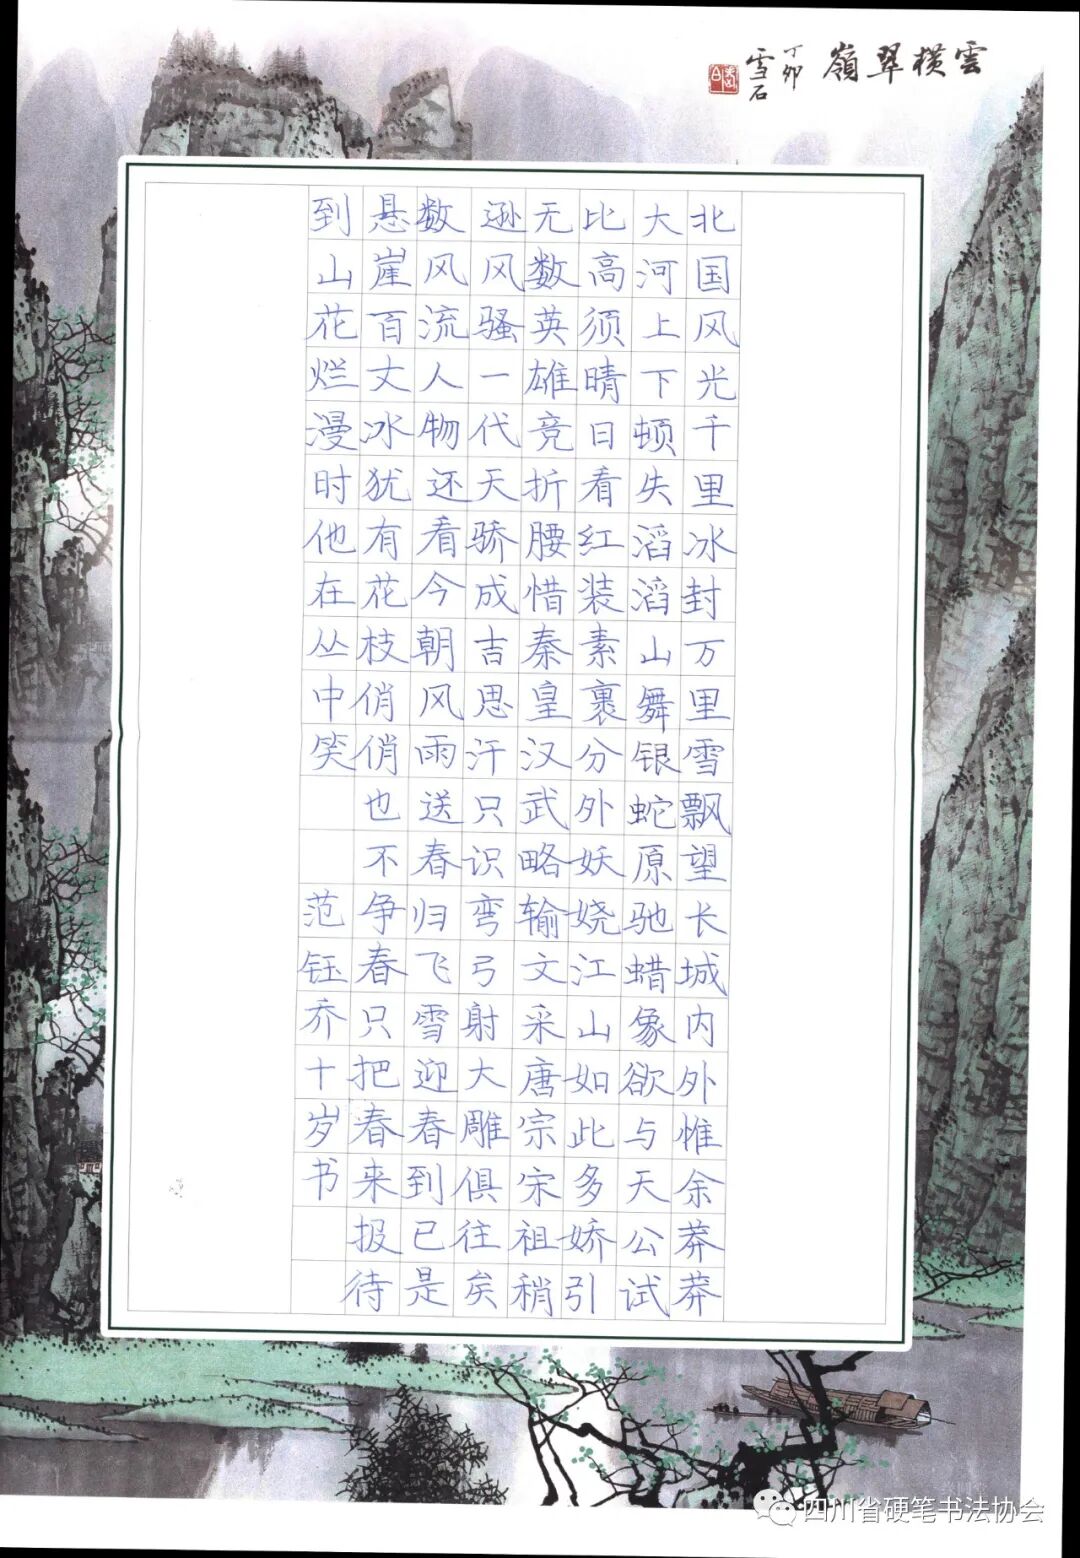 雲橫翠嶺
丁卯
雪石
北国风光千里冰封万里雪飘望长城内外惟余莽莽
大河上下顿失滔滔山舞银蛇原驰蜡象欲与天公试
比高须晴日看红装素裹分外妖娆江山如此多娇引
无数英雄竞折腰惜秦皇汉武略输文采唐宗宋祖稍
逊风骚一代天骄成吉思汗只识弯弓射大雕俱往矣
数风流人物还看今朝风雨送春归飞雪迎春到已是
悬崖百丈冰犹有花枝俏俏也不争春只把春来报待
到山花烂漫时他在丛中笑 范钰乔十岁书
四川省硬笔书法协会